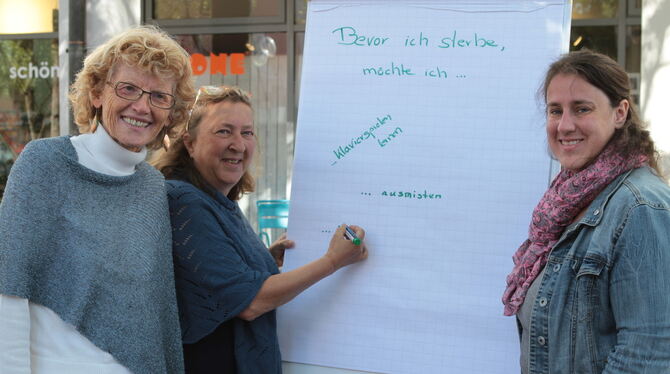 schön
ONE
Bevor ich sterbe,
möchte ich ...
... Klavierspielen
lernen
... ausmisten
...